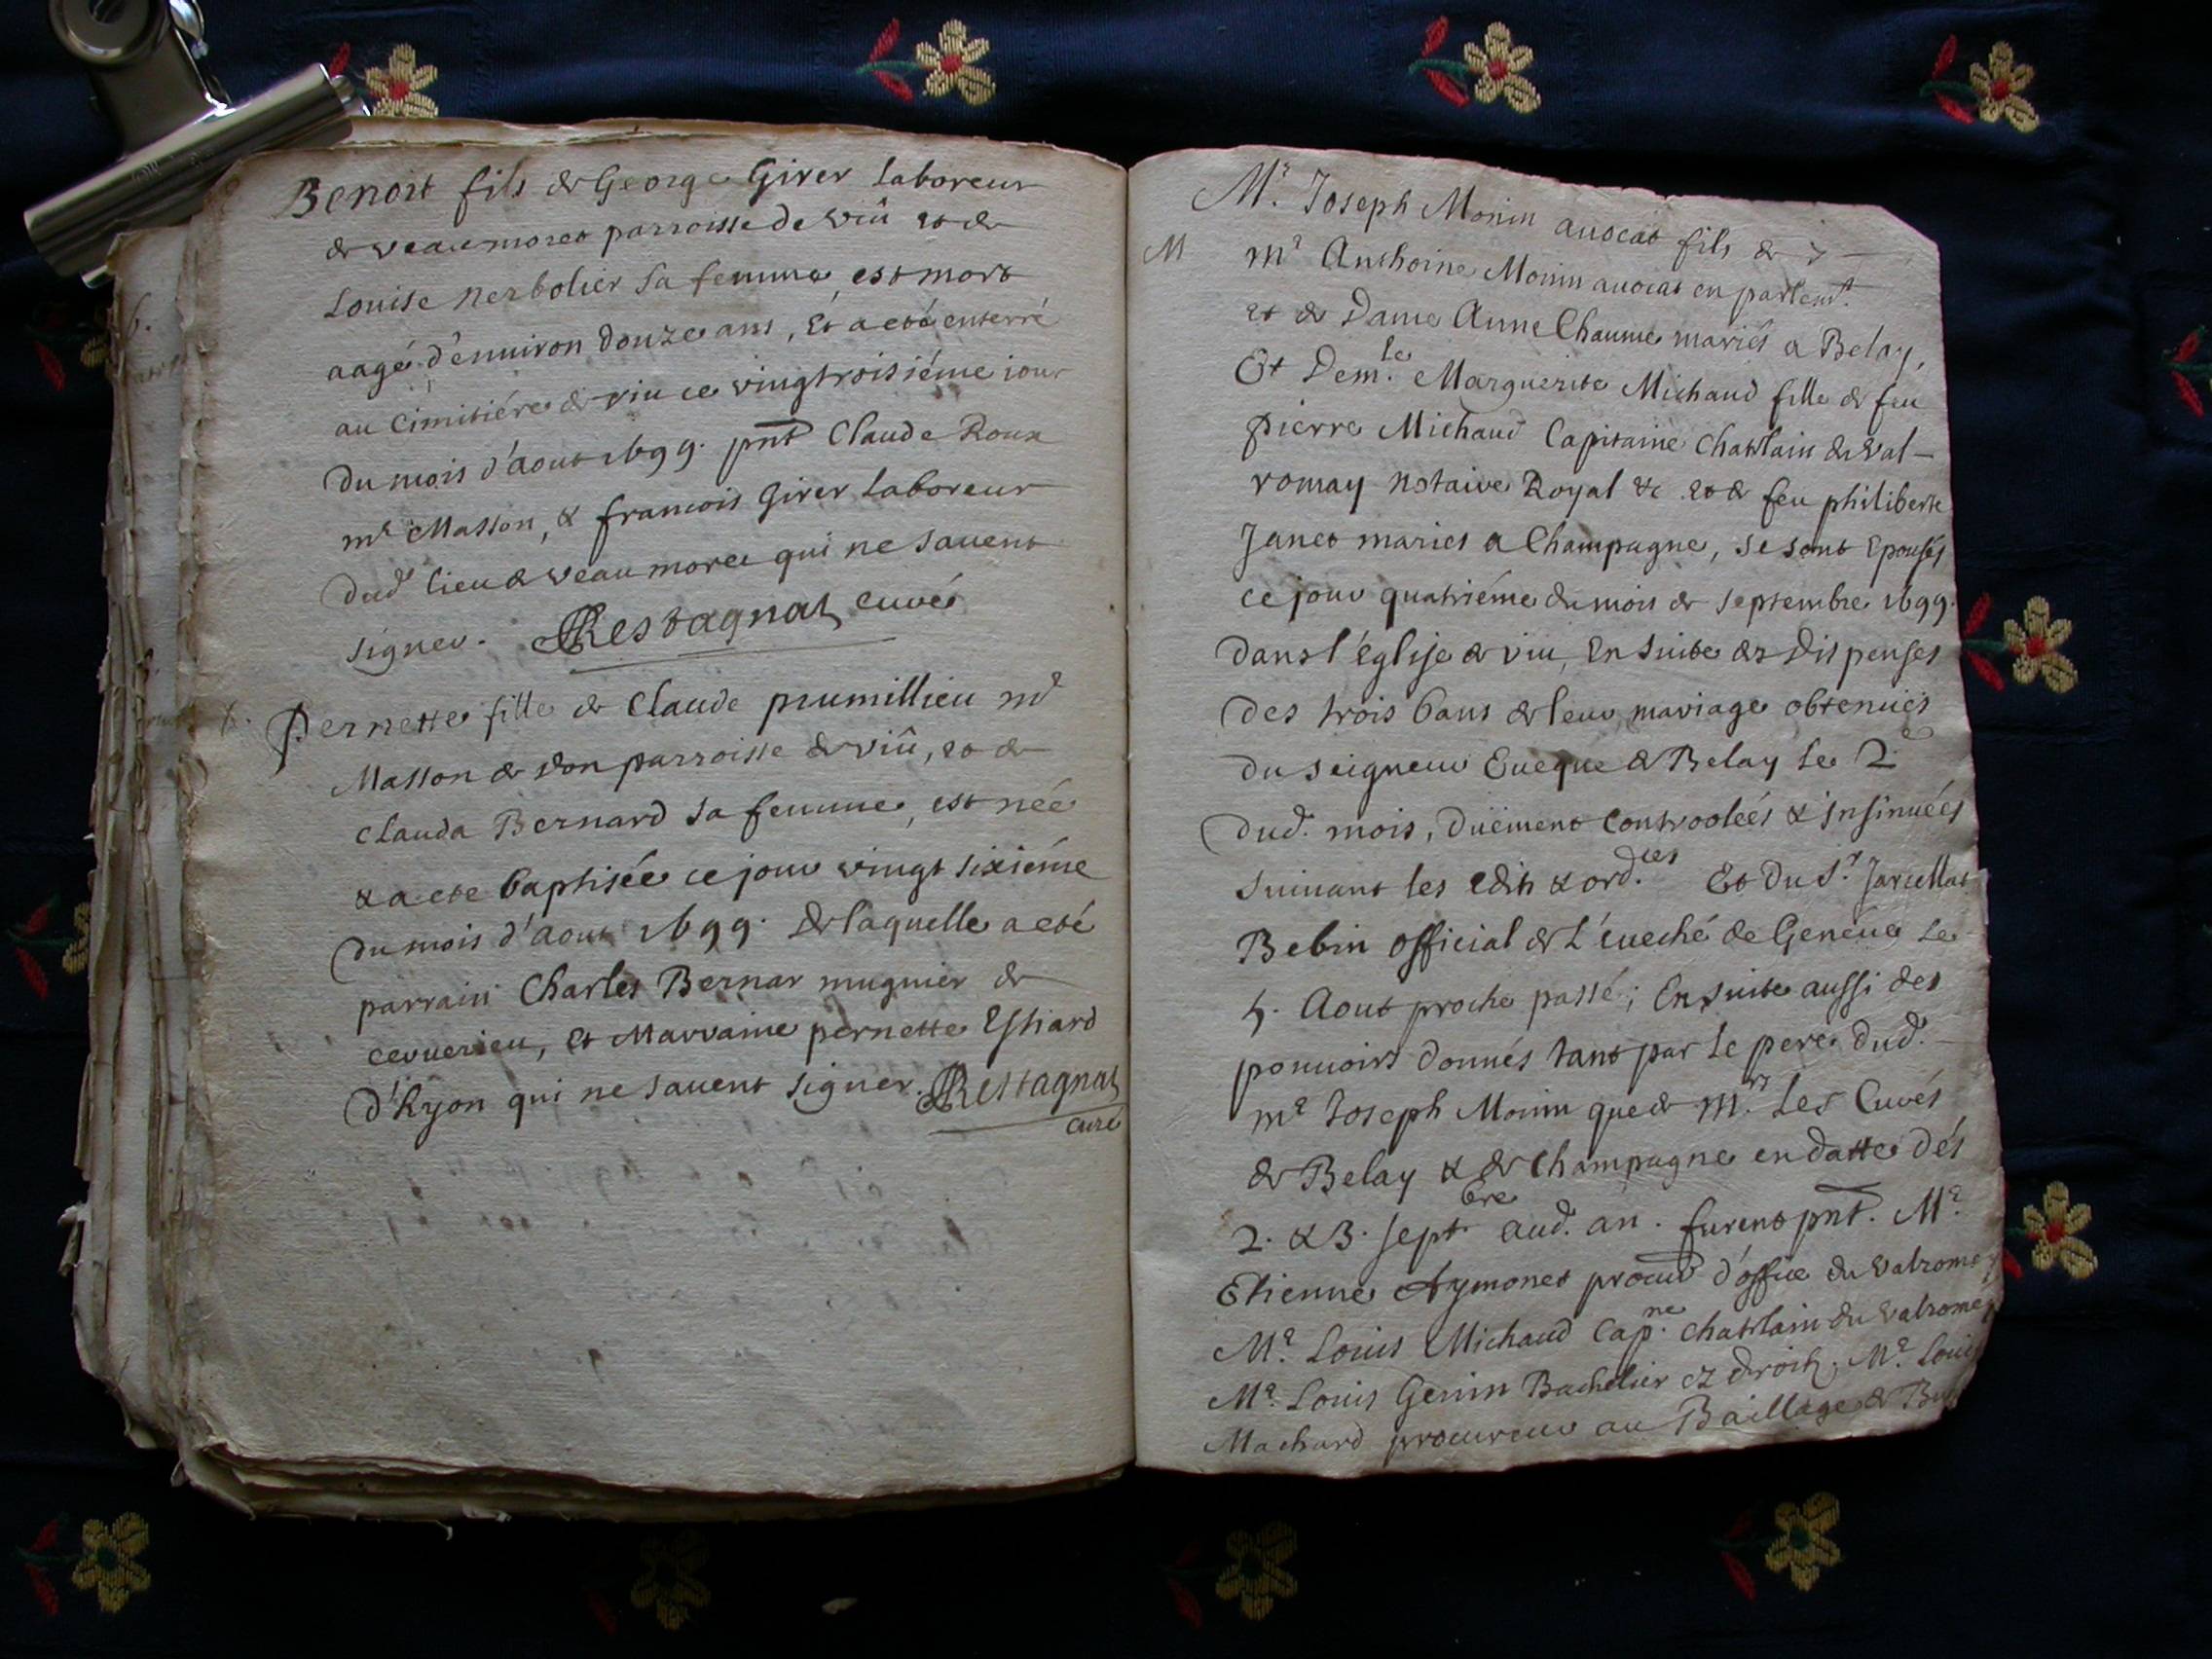 Benoit fils de George Girer Laboreur
de veaumoret parroisse de viû et de
Louise nerbolier sa femme, est mort
aagé d'enuiron douze ans, Et a eté enterré
au Cimitiére de viu ce vingtroisiéme iour
du mois d'aout 1699. pnt Claude Roux
mr Masson, & francois Girer Laboreur
dud lieu de veaumoret qui ne sauent
signer. Restagnat curé
b.
Pernette fille de Claude prumillieu md
Masson de don parroisse de viû, et de
Clauda Bernard sa femme, est née
& a eté baptisée ce jour vingt sixiéme
du mois d'aout 1699. de laquelle a eté
parrain Charles Bernar mugnier de
ceruerieu, et Marraine pernette
d' qui ne sauent signer. Restagnat
curé
Mr. Joseph Monin auocat fils de
M
mr Anthoine Monin auocat en parlemt.
et de Dame Anne Chaume mariés a Belay,
Et Demlle. Marguerite Michaud fille de feu
pierre Michaud Capitaine Chatelain de Val-
romay notaire Royal &c et de feu philiberte
Janet mariés a Champagne, se sont Epousés
ce jour quatriéme du mois de septembre 1699.
dans l'Eglise de viu, En suite des dispenses
des trois bans de leur mariage obtenues
du seigneur Eueque de Belay le 2e
dud. mois, düement controoleés & insinuées
suiuant les edits & ordces. Et du Sr.
Bebin official de L'eueché de Genéue le
5. Aout proche passé; En suite aussi des
pouuoirs donnés tant par le pere dud.
mr Joseph Monin que de Mrs. les Curés
de Belay & de Champagne en datte dés
2. & 3. septbre. aud. an. furent pnt. Mr.
Etienne Aymonet procur d'office du valrome
Mr. Louis Michaud Capne. chatelain du valrome
Mr. Louis Genin Bachelier ez droits, Mr. Louis
Machard procureur au Baillage de